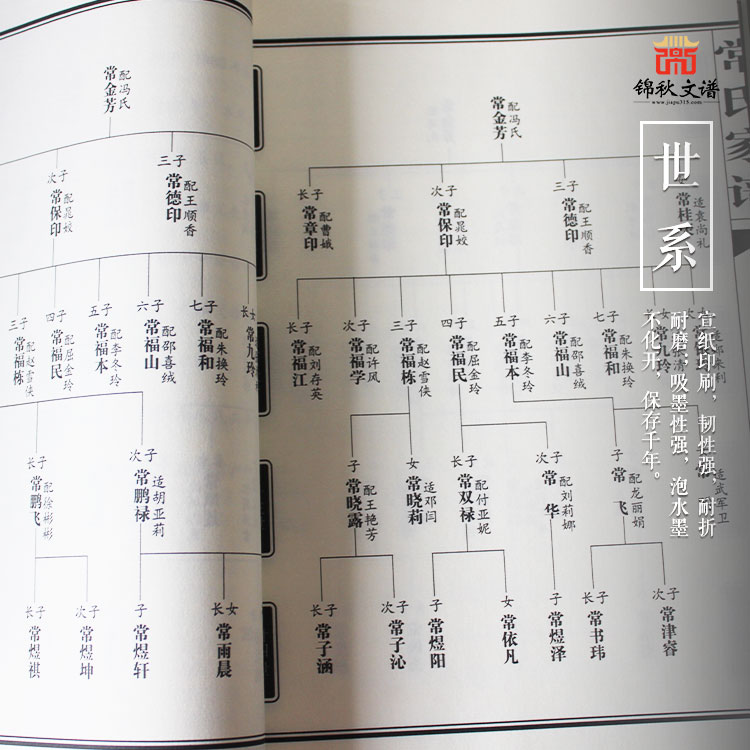 锦秋文谱
www.jiapu315.com
世系
宣纸印刷，韧性强 耐折
耐磨；吸墨性强，泡水墨
不化开，保存千年。
常氏家谱
常金芳 配冯氏
三子 常德印 配王顺香
次子 常保印 配晁姣
三子 常福栋 配赵雪侠
四子 常福民 配屈金玲
五子 常福本 配李冬玲
六子 常福山 配邵喜绒
七子 常福和 配朱换玲
长女 常九玲
长子 常鹏飞 配徐彬彬
次子 常鹏禄 适胡亚莉
长子 常煜祺
次子 常煜坤
子 常煜轩
长女 常雨晨
常金芳 配冯氏
长子 常章印 配曹娥
次子 常保印 配晁姣
三子 常德印 配王顺香
常桂 适袁尚礼
长子 常福江 配刘存英
次子 常福学 配许风
三子 常福栋 配赵雪侠
四子 常福民 配屈金玲
五子 常福本 配李冬玲
六子 常福山 配邵喜绒
七子 常福和 配朱换玲
女 常九玲
子 常晓露 配王艳芳
女 常晓莉 适邓闫
长子 常双禄 配付亚妮
次子 常华 配刘莉娜
子 常飞 配龙丽娟
适武军卫
长子 常子涵
次子 常子沁
子 常煜阳
女 常依凡
子 常煜泽
长子 常书玮
次子 常津睿